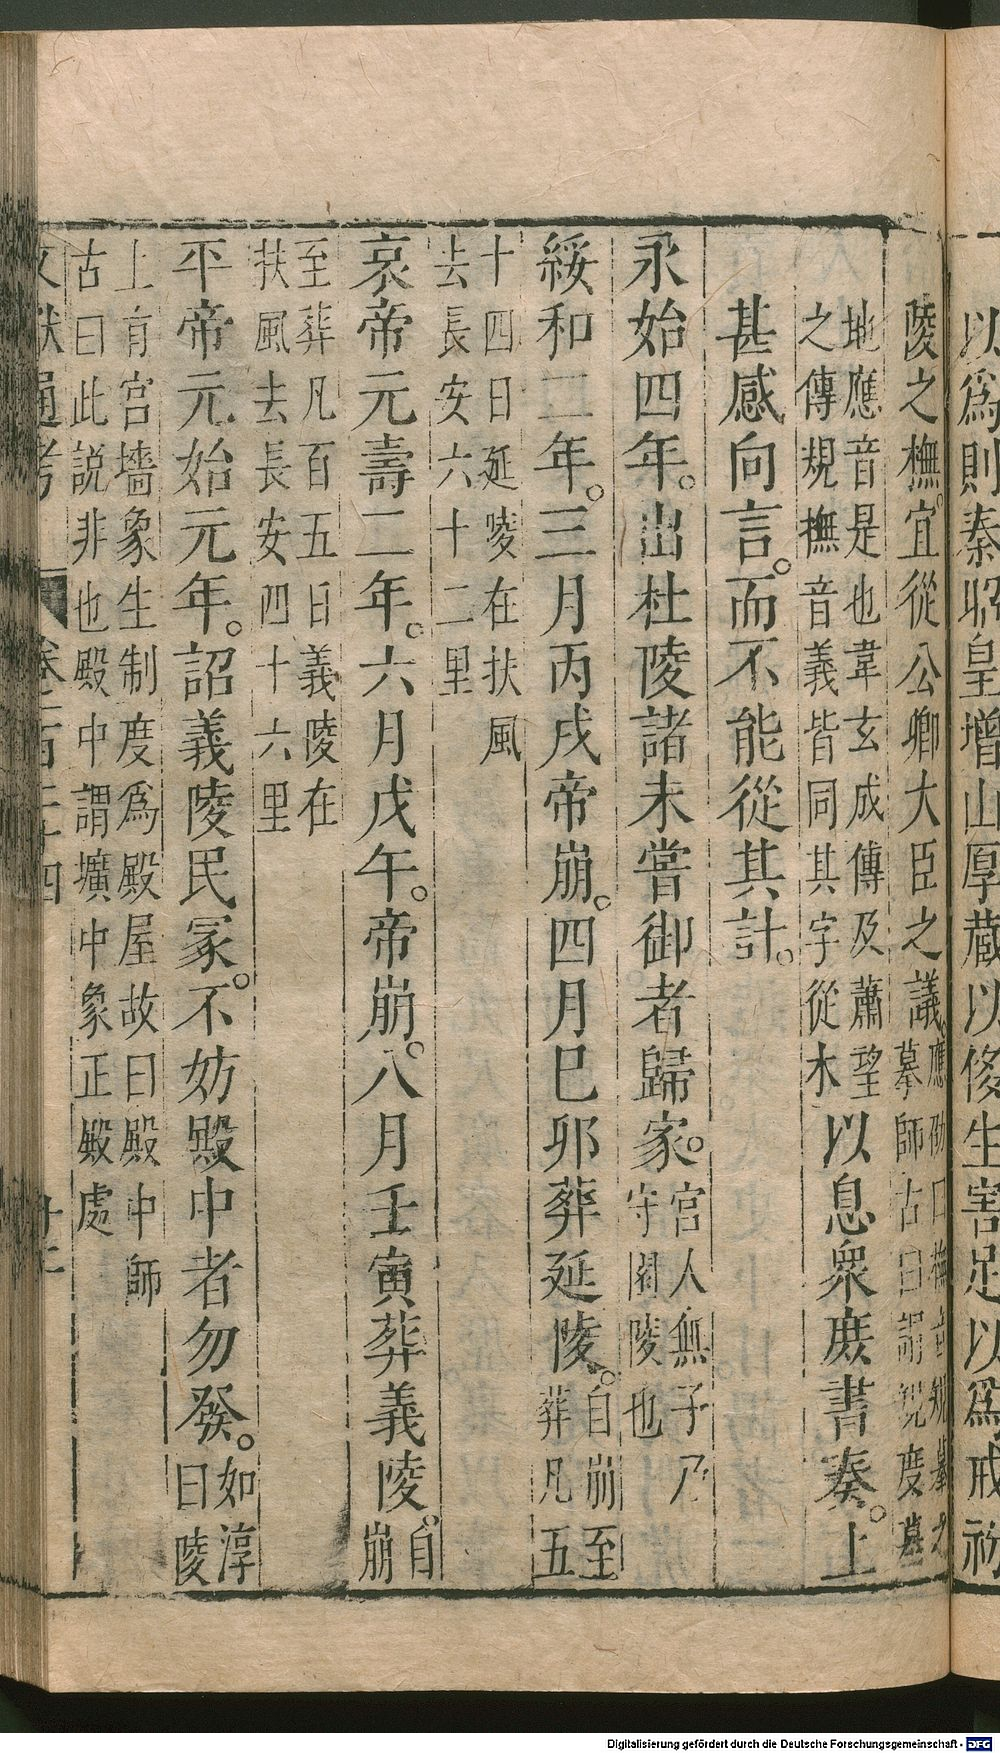 以爲則秦昭皇增山厚藏以侈生害足以爲戒初
陵之橅。宜從公卿大臣之議。應劭曰橅音規摹之
摹師古曰謂規度墓
地應音是也韋玄成傳及蕭望
之傳規撫音義皆同其字從木以息衆庶書奏。上
甚感向言。而不能從其計。
永始四年。出杜陵諸未嘗御者歸家。宮人無子乃
守園陵也
綏和二年。三月丙戌帝崩。四月巳卯葬延陵。自崩至
葬凡五
十四日延陵在扶風
去長安六十二里
哀帝元壽二年。六月戊午。帝崩。八月壬寅葬義陵。自
崩
至葬凡百五日義陵在
扶風去長安四十六里
平帝元始元年。詔義陵民冢。不妨殿中者勿發。如淳
曰陵
上有宮墻象生制度爲殿屋故曰殿中師
古曰此説非也殿中謂壙中象正殿處
文獻通考 卷一百二十四
Digitalisierung gefördert durch die Deutsche Forschungsgemeinschaft - DFG